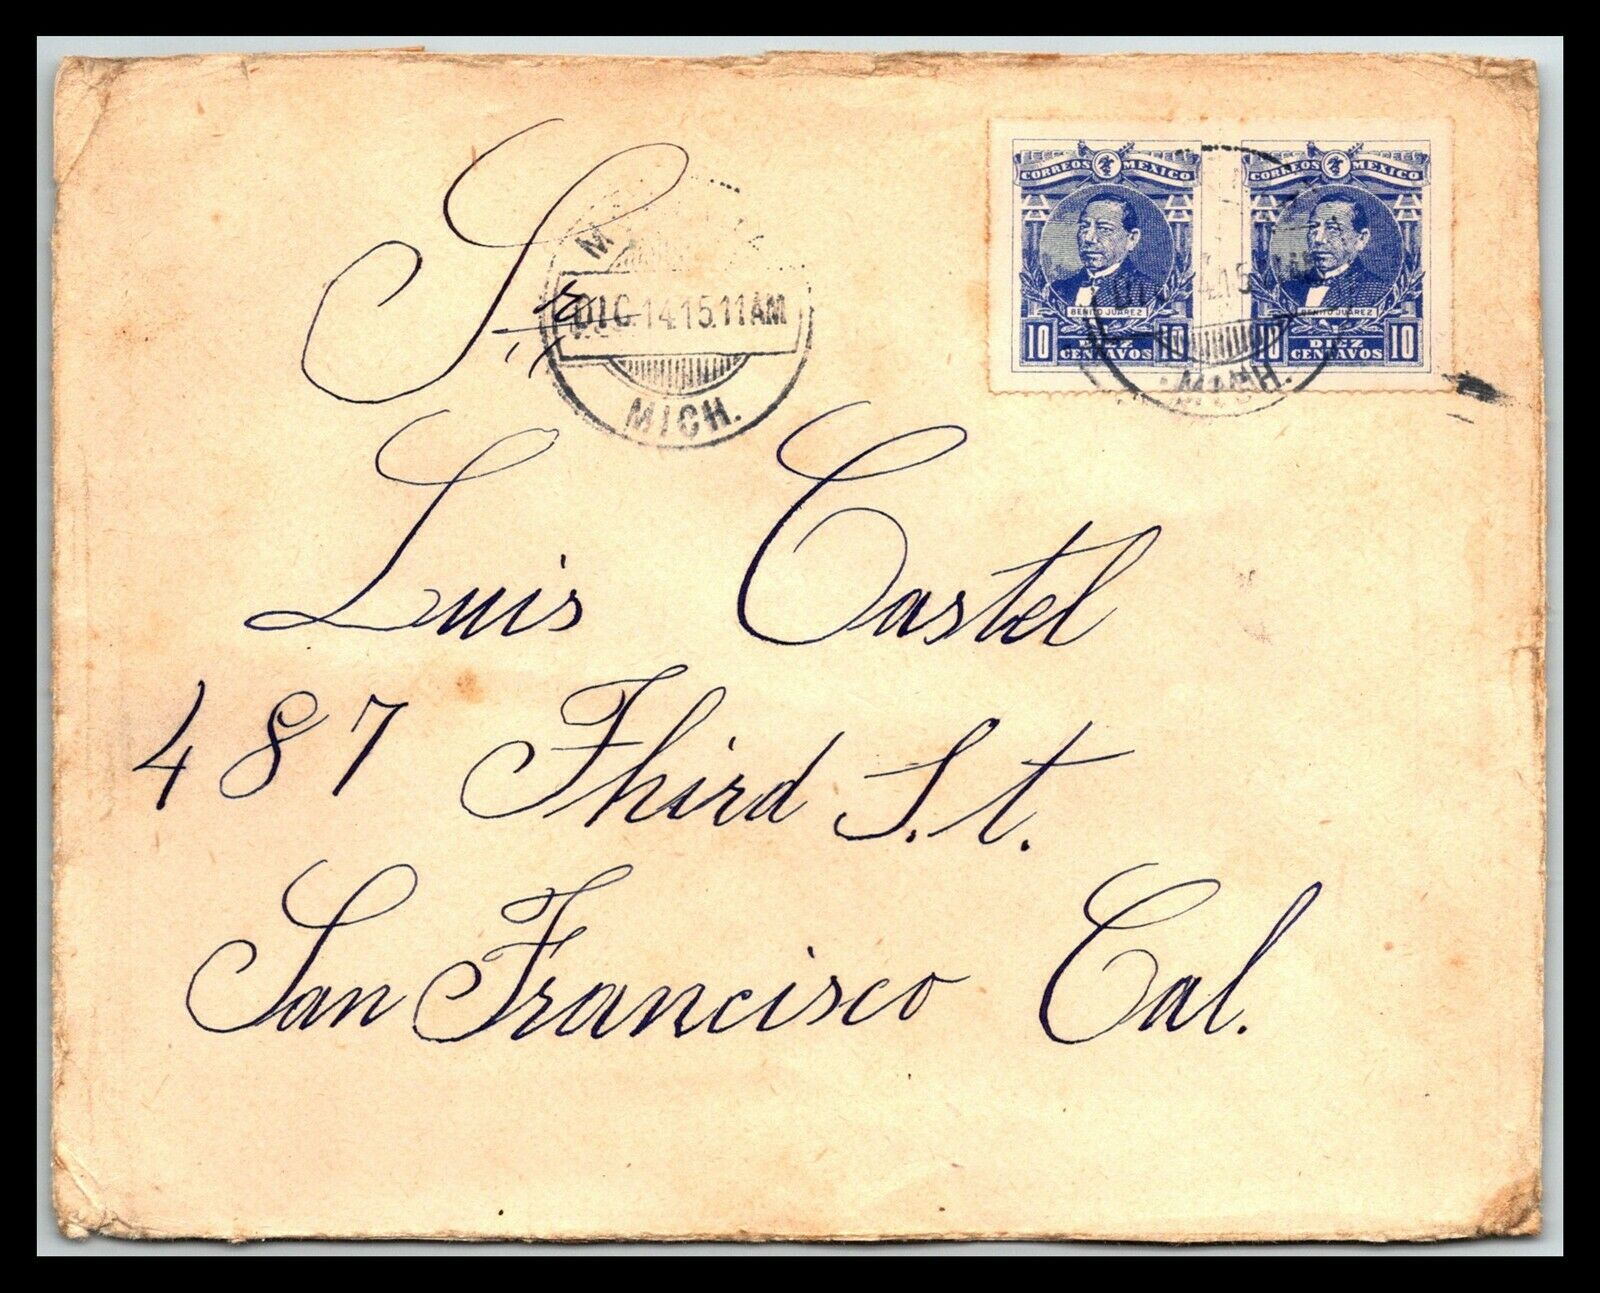 CORREOS MEXICO CORREOS MEXICO
BENITO JUAREZ BENITO JUAREZ
10 DIEZ CENTAVOS 10 10 DIEZ CENTAVOS 10
MICH.
Sr.
DIC.14.15.11AM
MICH.
Luis Castel
487 Third S.t.
San Francisco Cal.